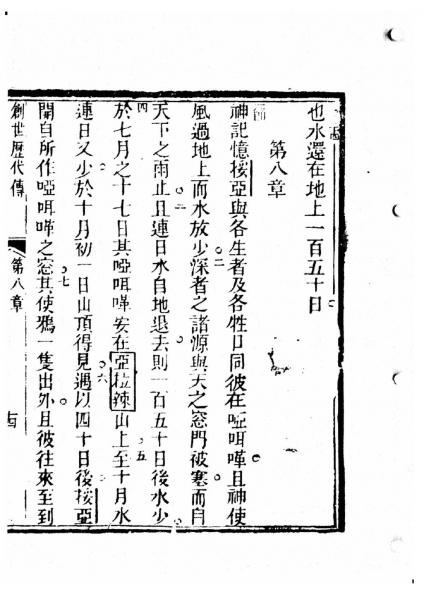 也水還在地上一百五十日
第八章
神記憶挼亞與各生者及各牲口同彼在啞咡嘩且神使
風過地上而水放少深者之諸源與天之窓門被塞而自
天下之雨止且連日水自地退去則一百五十日後水少
於七月之十七日其啞咡嘩安在亞拉辣山上至十月水
連日又少於十月初一日山頂得見過以四十日後挼亞
開自所作啞咡嘩之窓其使鴉一隻出外且彼往來至到
創世歷代傳 第八章